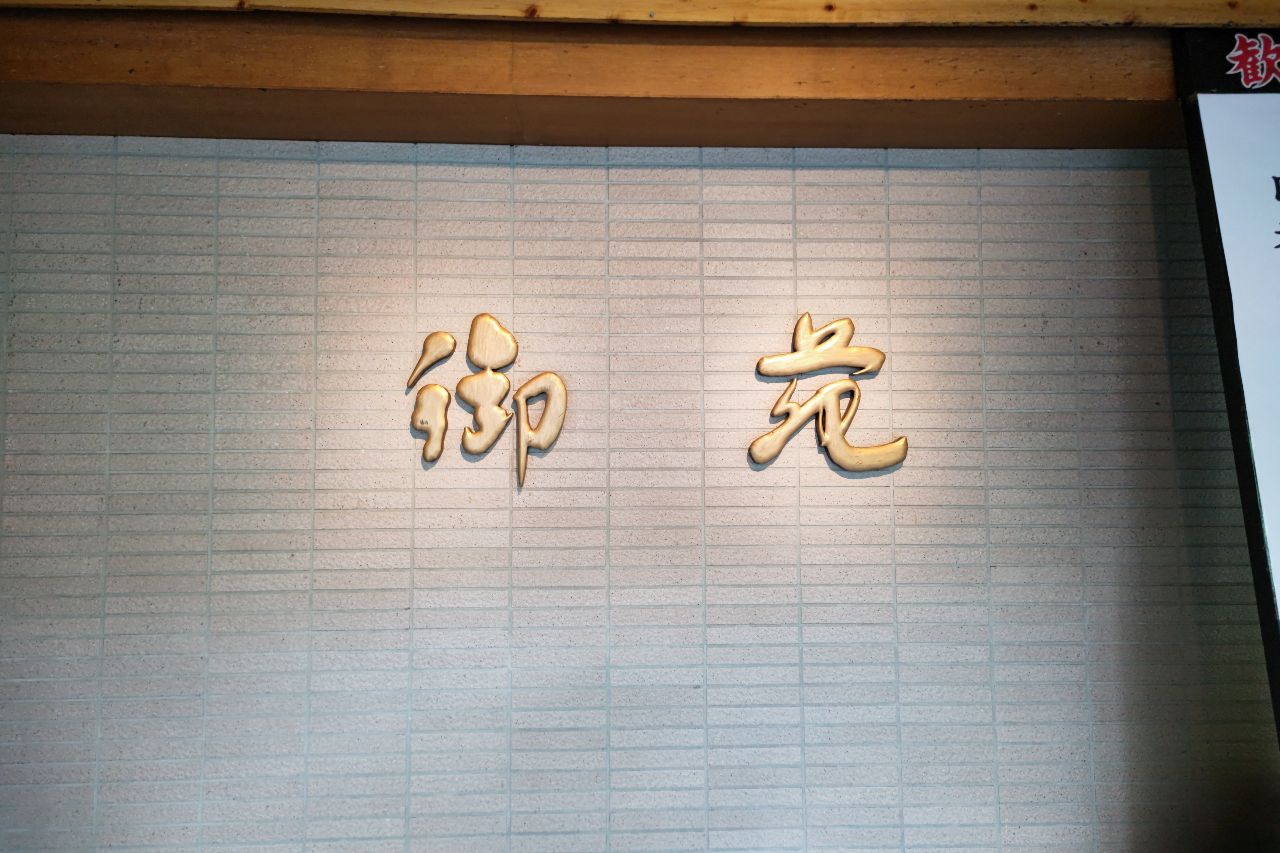 御苑
歓